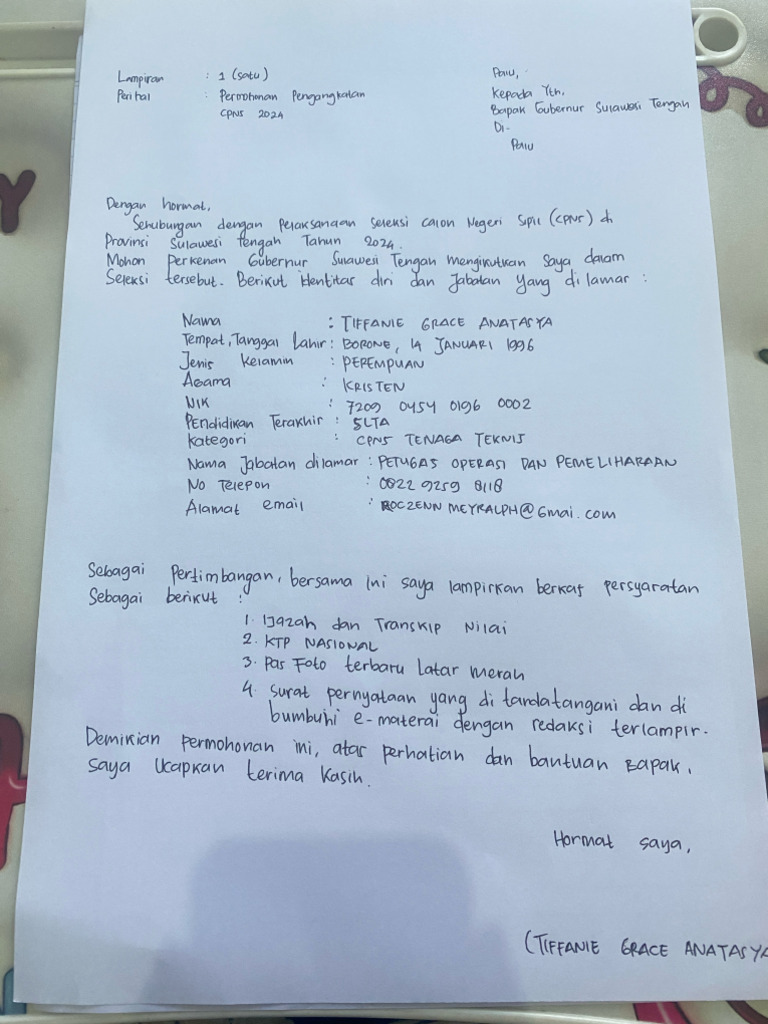 Lampiran : 1 (satu)
Perihal : Permohonan Pengangkatan
CPNS 2024
Palu,
Kepada Yth,
Bapak Gubernur Sulawesi Tengah
Di-
Palu
Dengan hormat,
Sehubungan dengan pelaksanaan seleksi calon Negeri Sipil (CPNS) di
Provinsi Sulawesi Tengah Tahun 2024.
Mohon perkenan Gubernur Sulawesi Tengah mengikutkan saya dalam
Seleksi tersebut. Berikut identitas diri dan Jabatan yang di lamar :
Nama : TIFFANIE GRACE ANATASYA
Tempat, Tanggal Lahir : BORONE, 14 JANUARI 1996
Jenis Kelamin : PEREMPUAN
Agama : KRISTEN
NIK : 7209 0454 0196 0002
Pendidikan Terakhir : SLTA
Kategori : CPNS TENAGA TEKNIS
Nama Jabatan dilamar : PETUGAS OPERASI DAN PEMELIHARAAN
No Telepon : 0822 9259 8118
Alamat email : ROCZENN MEYRALPH@Gmai.com
Sebagai Pertimbangan, bersama ini saya lampirkan berkas persyaratan
Sebagai berikut :
1. Ijazah dan Transkip Nilai
2. KTP NASIONAL
3. Pas Foto terbaru Latar Merah
4. Surat pernyataan yang di tandatangani dan di
bumbuhi e-materai dengan redaksi terlampir.
Demikian permohonan ini, atas perhatian dan bantuan Bapak,
Saya Ucapkan terima kasih.
Hormat saya,
(TIFFANIE GRACE ANATASYA